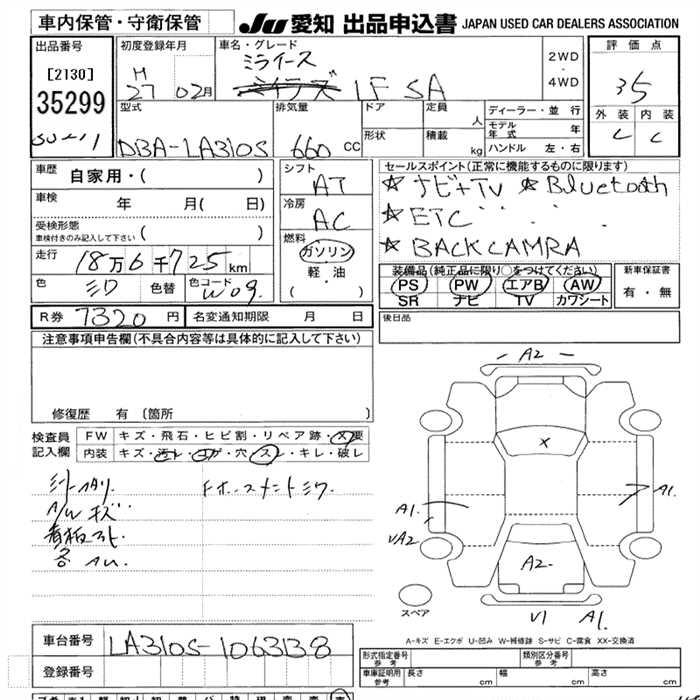 車内保管・守衛保管
JU 愛知 出品申込書 JAPAN USED CAR DEALERS ASSOCIATION
出品番号
[2130]
35299
初度登録年月
H
27 02月
車名・グレード
ミライース
LF SA
2WD
・
4WD
評価点
35
外装 内装
C C
型式
DBA-LA310S
排気量
660 CC
ドア
形状
定員 人
積載 kg
ディーラー・並 行
モデル年式 年
ハンドル 左・右
車歴
自家用・( )
車検 年 月( 日)
受検形態
車検付きのみ記入して下さい ( )
走行
18万6千725km
色 ミワ 色替 色コード W09.
シフト
AT
冷房
AC
燃料
ガソリン
軽・油
( ・ )
セールスポイント(正常に機能するものに限ります)
☆ナビ+TV ☆Bluetooth
☆ETC
☆BACKCAMRA
装備品(純正品に限り○をつけてください)
PS PW エアB AW
SR ナビ TV カワシート
新車保証書
有・無
R券 7320 円 名変通知期限 月 日
後日品
注意事項申告欄(不具合内容等は具体的に記入して下さい)
修復歴 有 〔箇所 〕
検査員
記入欄
FW キズ・飛石・ヒビ割・リペア跡・X要
内装 キズ・汚レ・コゲ・穴・スレ・キレ・破レ
A/W キズ
A2
X
A1.
VA2
A1.
A2
V1 A1.
スペア
A-キズ E-エクボ U-凹み W-補修跡 S-サビ C-腐食 XX-交換済
車台番号 LA310S-1063138
登録番号
形式指定番号
参考
類別区分番号
参考
車庫証明用
参考
長さ cm 幅 cm 高さ cm